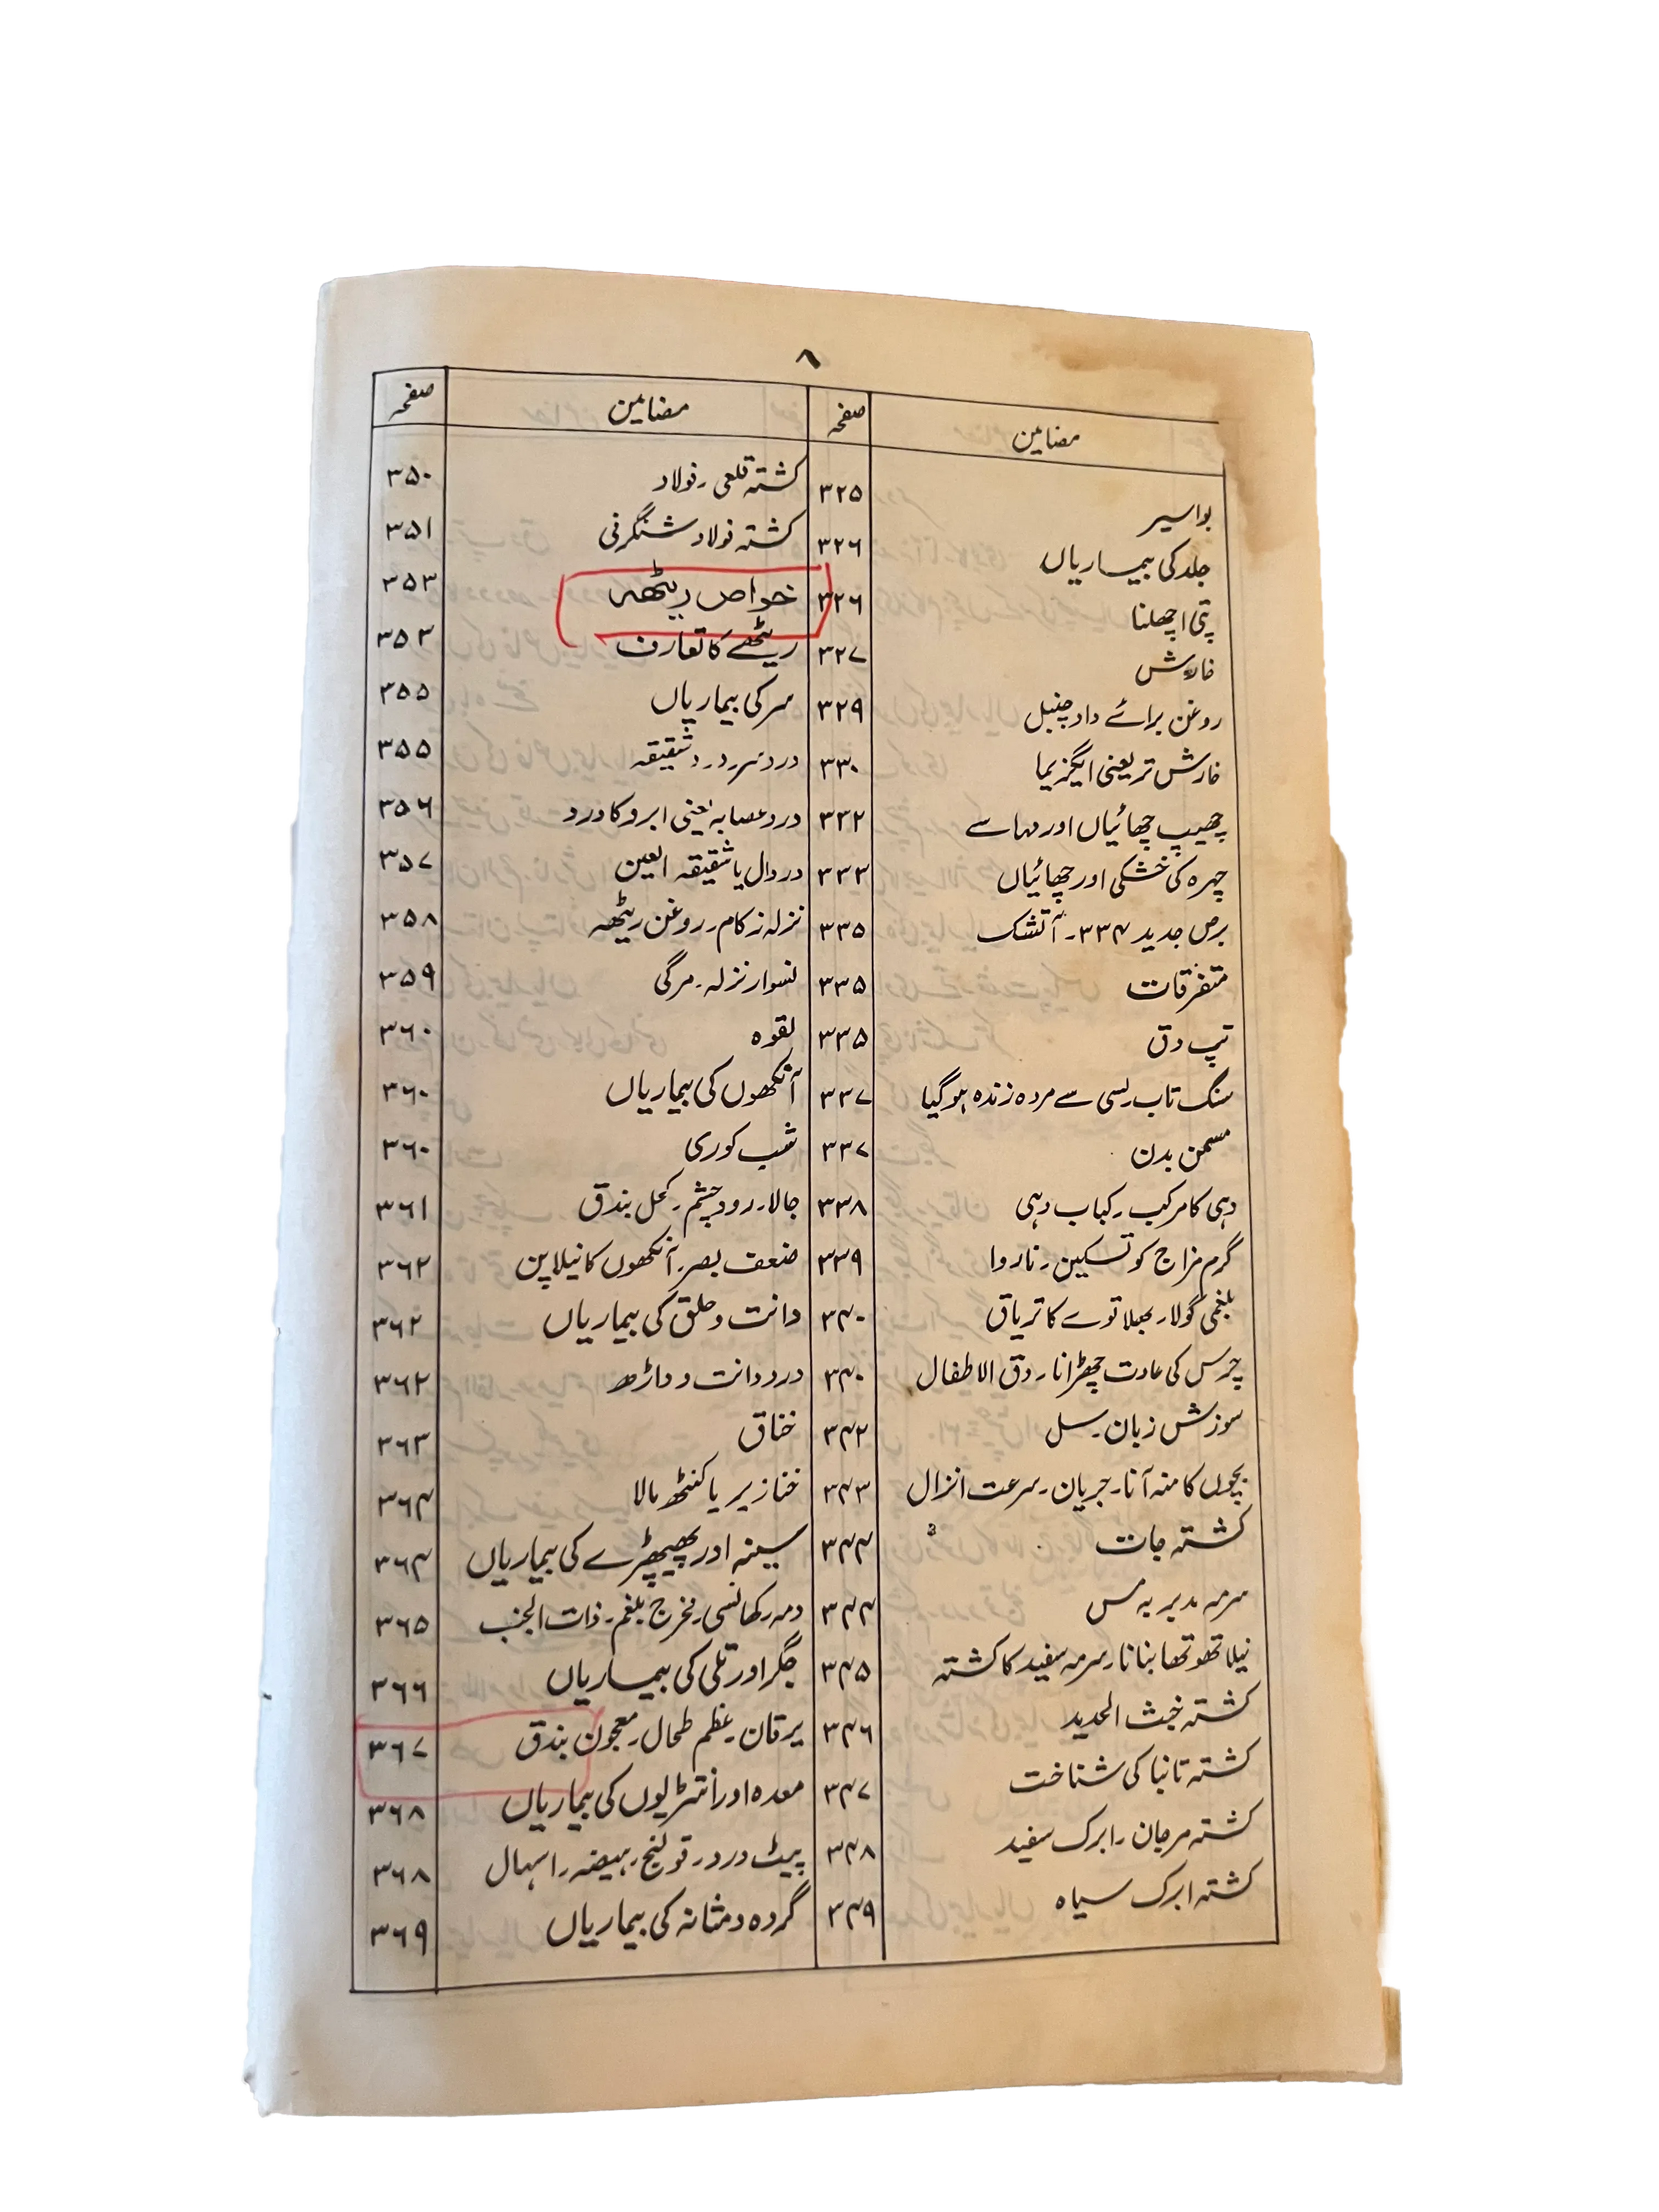 ۸
مضامین صفحہ
بواسیر ۳۲۵
جلد کی بیماریاں ۳۲۶
پتی اچھلنا ۳۲۶
خارش ۳۲۷
روغن برائے داد چنبل ۳۲۹
خارش تر یعنی ایگزیما ۳۳۰
چھیپ چھائیاں اور مہاسے ۳۳۲
چہرہ کی خشکی اور چھائیاں ۳۳۳
برص جدید ۳۳۴۔ آتشک ۳۳۵
متفرقات ۳۳۵
تپ دق ۳۳۵
سنگ تاب لسی سے مردہ زندہ ہو گیا ۳۳۷
مسمن بدن ۳۳۷
دہی کا مرکب۔ کباب دہی ۳۳۸
گرم مزاج کو تسکین۔ ناروا ۳۳۹
بلغمی گولا۔ بھلاتوے کا تریاق ۳۴۰
چرس کی عادت چھڑانا۔ دق الاطفال ۳۴۰
سوزش زبان۔ سل ۳۴۲
بچوں کا منہ آنا۔ جریان۔ سرعت انزال ۳۴۳
کشتہ جات ۳۴۴
سرمہ مدبر بہ مس ۳۴۴
نیلا تھوتھا بنانا۔ سرمہ سفید کا کشتہ ۳۴۵
کشتہ خبث الحدید ۳۴۶
کشتہ تانبا کی شناخت ۳۴۷
کشتہ مرجان۔ ابرک سفید ۳۴۸
کشتہ ابرک سیاہ ۳۴۹
مضامین صفحہ
کشتہ قلعی۔ فولاد ۳۵۰
کشتہ فولاد شنگرفی ۳۵۱
خواص ریٹھہ ۳۵۳
ریٹھے کا تعارف ۳۵۳
سر کی بیماریاں ۳۵۵
درد سر۔ درد شقیقہ ۳۵۵
درد عصابہ یعنی ابرو کا درد ۳۵۶
درد ال یا شقیقہ العین ۳۵۷
نزلہ زکام۔ روغن ریٹھہ ۳۵۸
نسوار نزلہ۔ مرگی ۳۵۹
لقوہ ۳۶۰
آنکھوں کی بیماریاں ۳۶۰
شب کوری ۳۶۰
جالا۔ درد چشم۔ کحل بندق ۳۶۱
ضعف بصر۔ آنکھوں کا نیلا پن ۳۶۲
دانت و حلق کی بیماریاں ۳۶۲
درد دانت و داڑھ ۳۶۲
خناق ۳۶۳
خنازیر یا کنٹھ مالا ۳۶۴
سینہ اور پھیپھڑے کی بیماریاں ۳۶۴
دمہ۔ کھانسی۔ مخرج بلغم۔ ذات الجنب ۳۶۵
جگر اور تلی کی بیماریاں ۳۶۶
یرقان۔ عظم طحال۔ معجون بندق ۳۶۷
معدہ اور انتڑیوں کی بیماریاں ۳۶۸
پیٹ درد۔ قولنج۔ ہیضہ۔ اسہال ۳۶۸
گردہ و مثانہ کی بیماریاں ۳۶۹